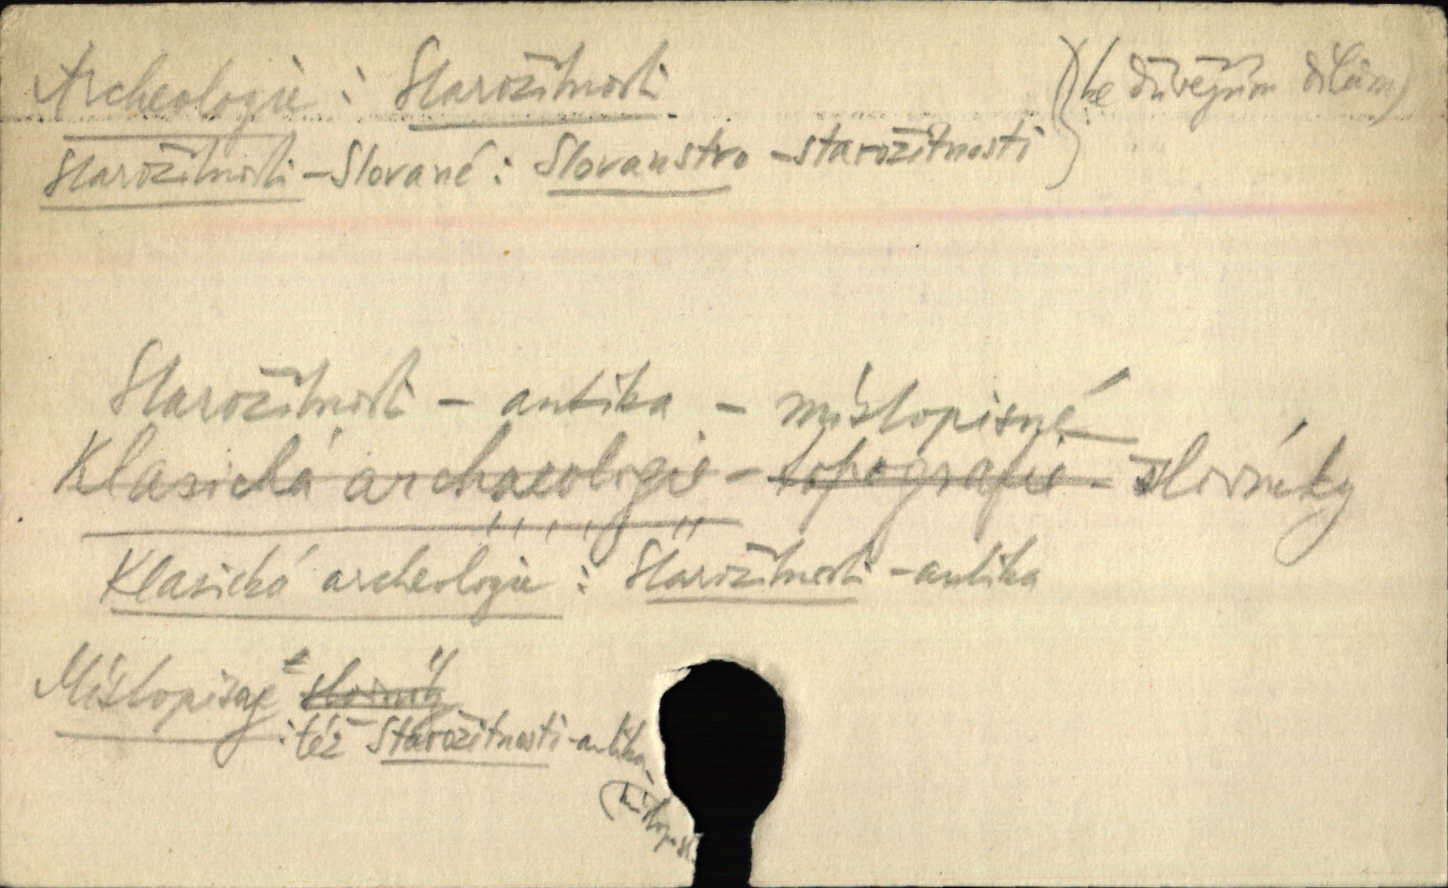 Archeologie : Starožitnosti
(ke dřívějším dílům)
Starožitnosti - Slované : Slovanstvo - starožitnosti
Starožitnosti - antika - místopisné
Klasická archaeologie - topografie - slovníky
Klasická archeologie : Starožitnosti - antika
Místopisné slovníky
: též Starožitnosti - antika -